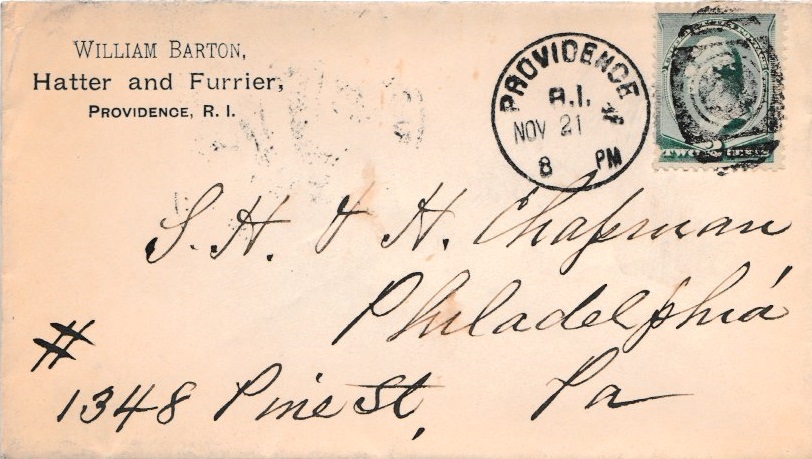 WILLIAM BARTON,
Hatter and Furrier,
PROVIDENCE, R. I.
PROVIDENCE
R.I.
NOV 21
8 PM
2
TWO CENTS
S. H. & H. Chapman
Philadelphia
#
1348 Pine St, Pa